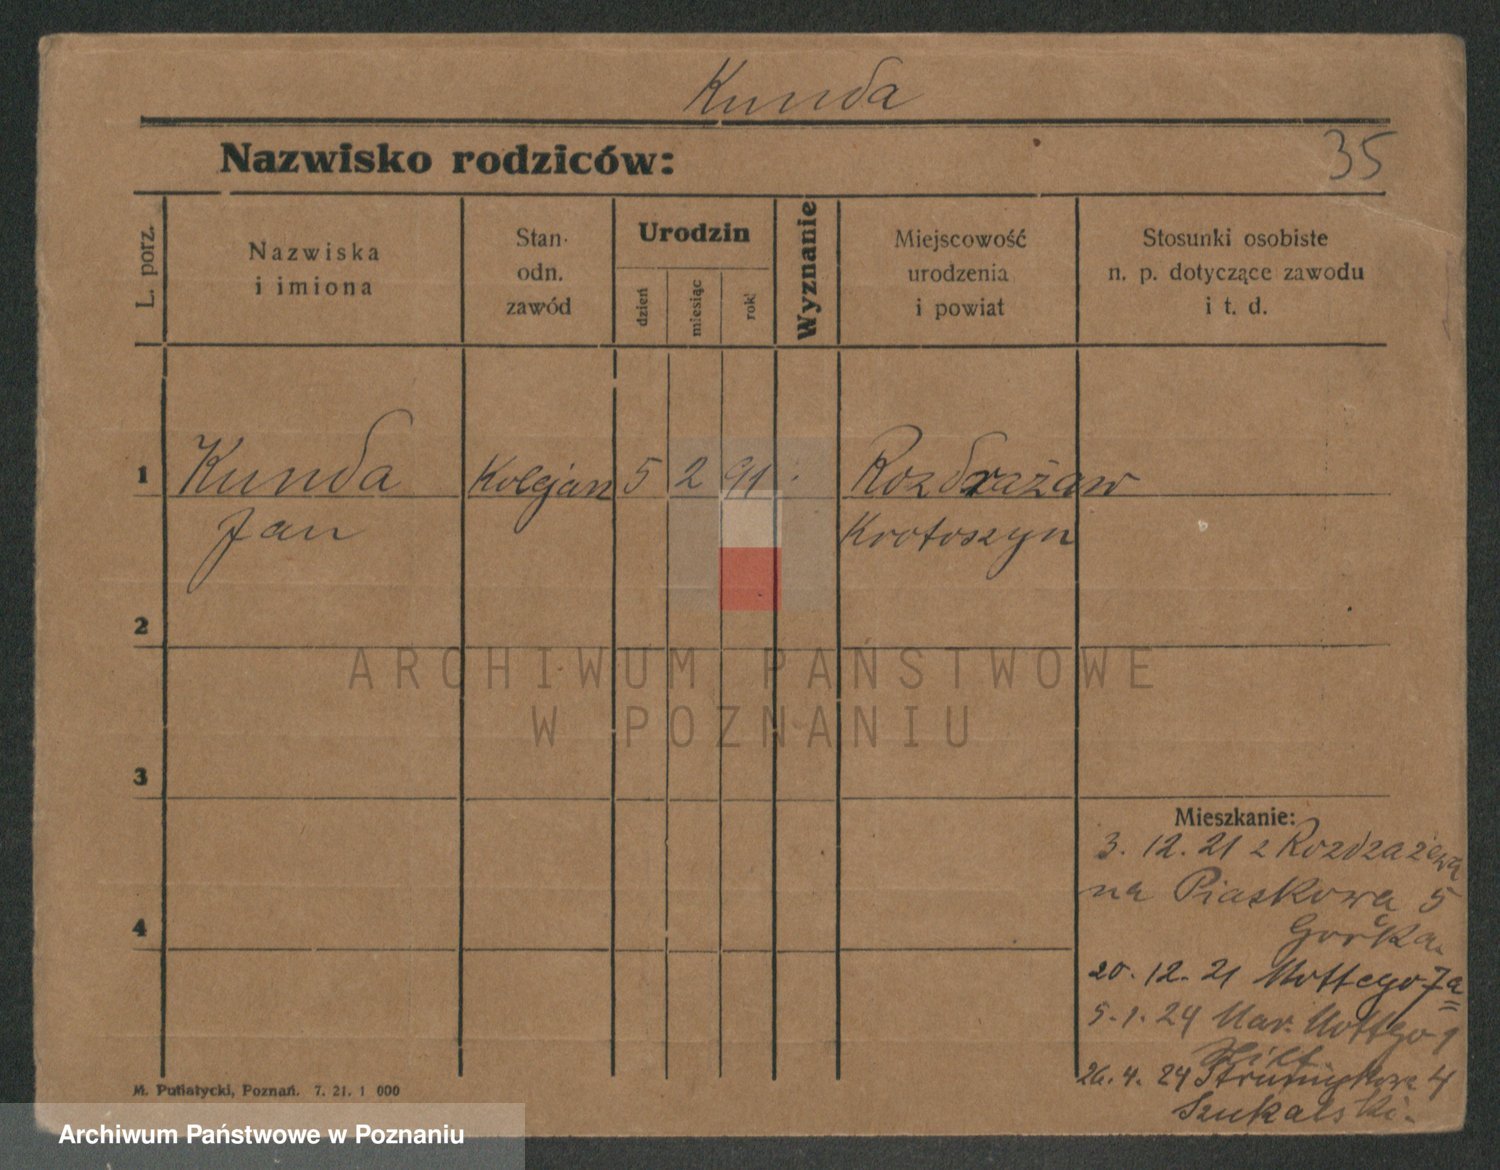 Kunda
Nazwisko rodziców:
35
L. porz.
Nazwiska
i imiona
Stan
odn.
zawód
Urodzin
dzień
miesiąc
rok
Wyznanie
Miejscowość
urodzenia
i powiat
Stosunki osobiste
n. p. dotyczące zawodu
i t. d.
1
Kunda Kolejarz 5 2 91 Rozdrażew
Jan Krotoszyn
2
ARCHIWUM PAŃSTWOWE
W POZNANIU
3
Mieszkanie:
3. 12. 21 z Rozdrażewa
na Piaskową 5
Gorka
4
20. 12. 21 Mottego 7a
5. 1. 24 Mar. Mottego 1
26. 4. 24 Strumykowa 4
Szukalski.
M. Putiatycki, Poznań. 7. 21. 1 000
Archiwum Państwowe w Poznaniu